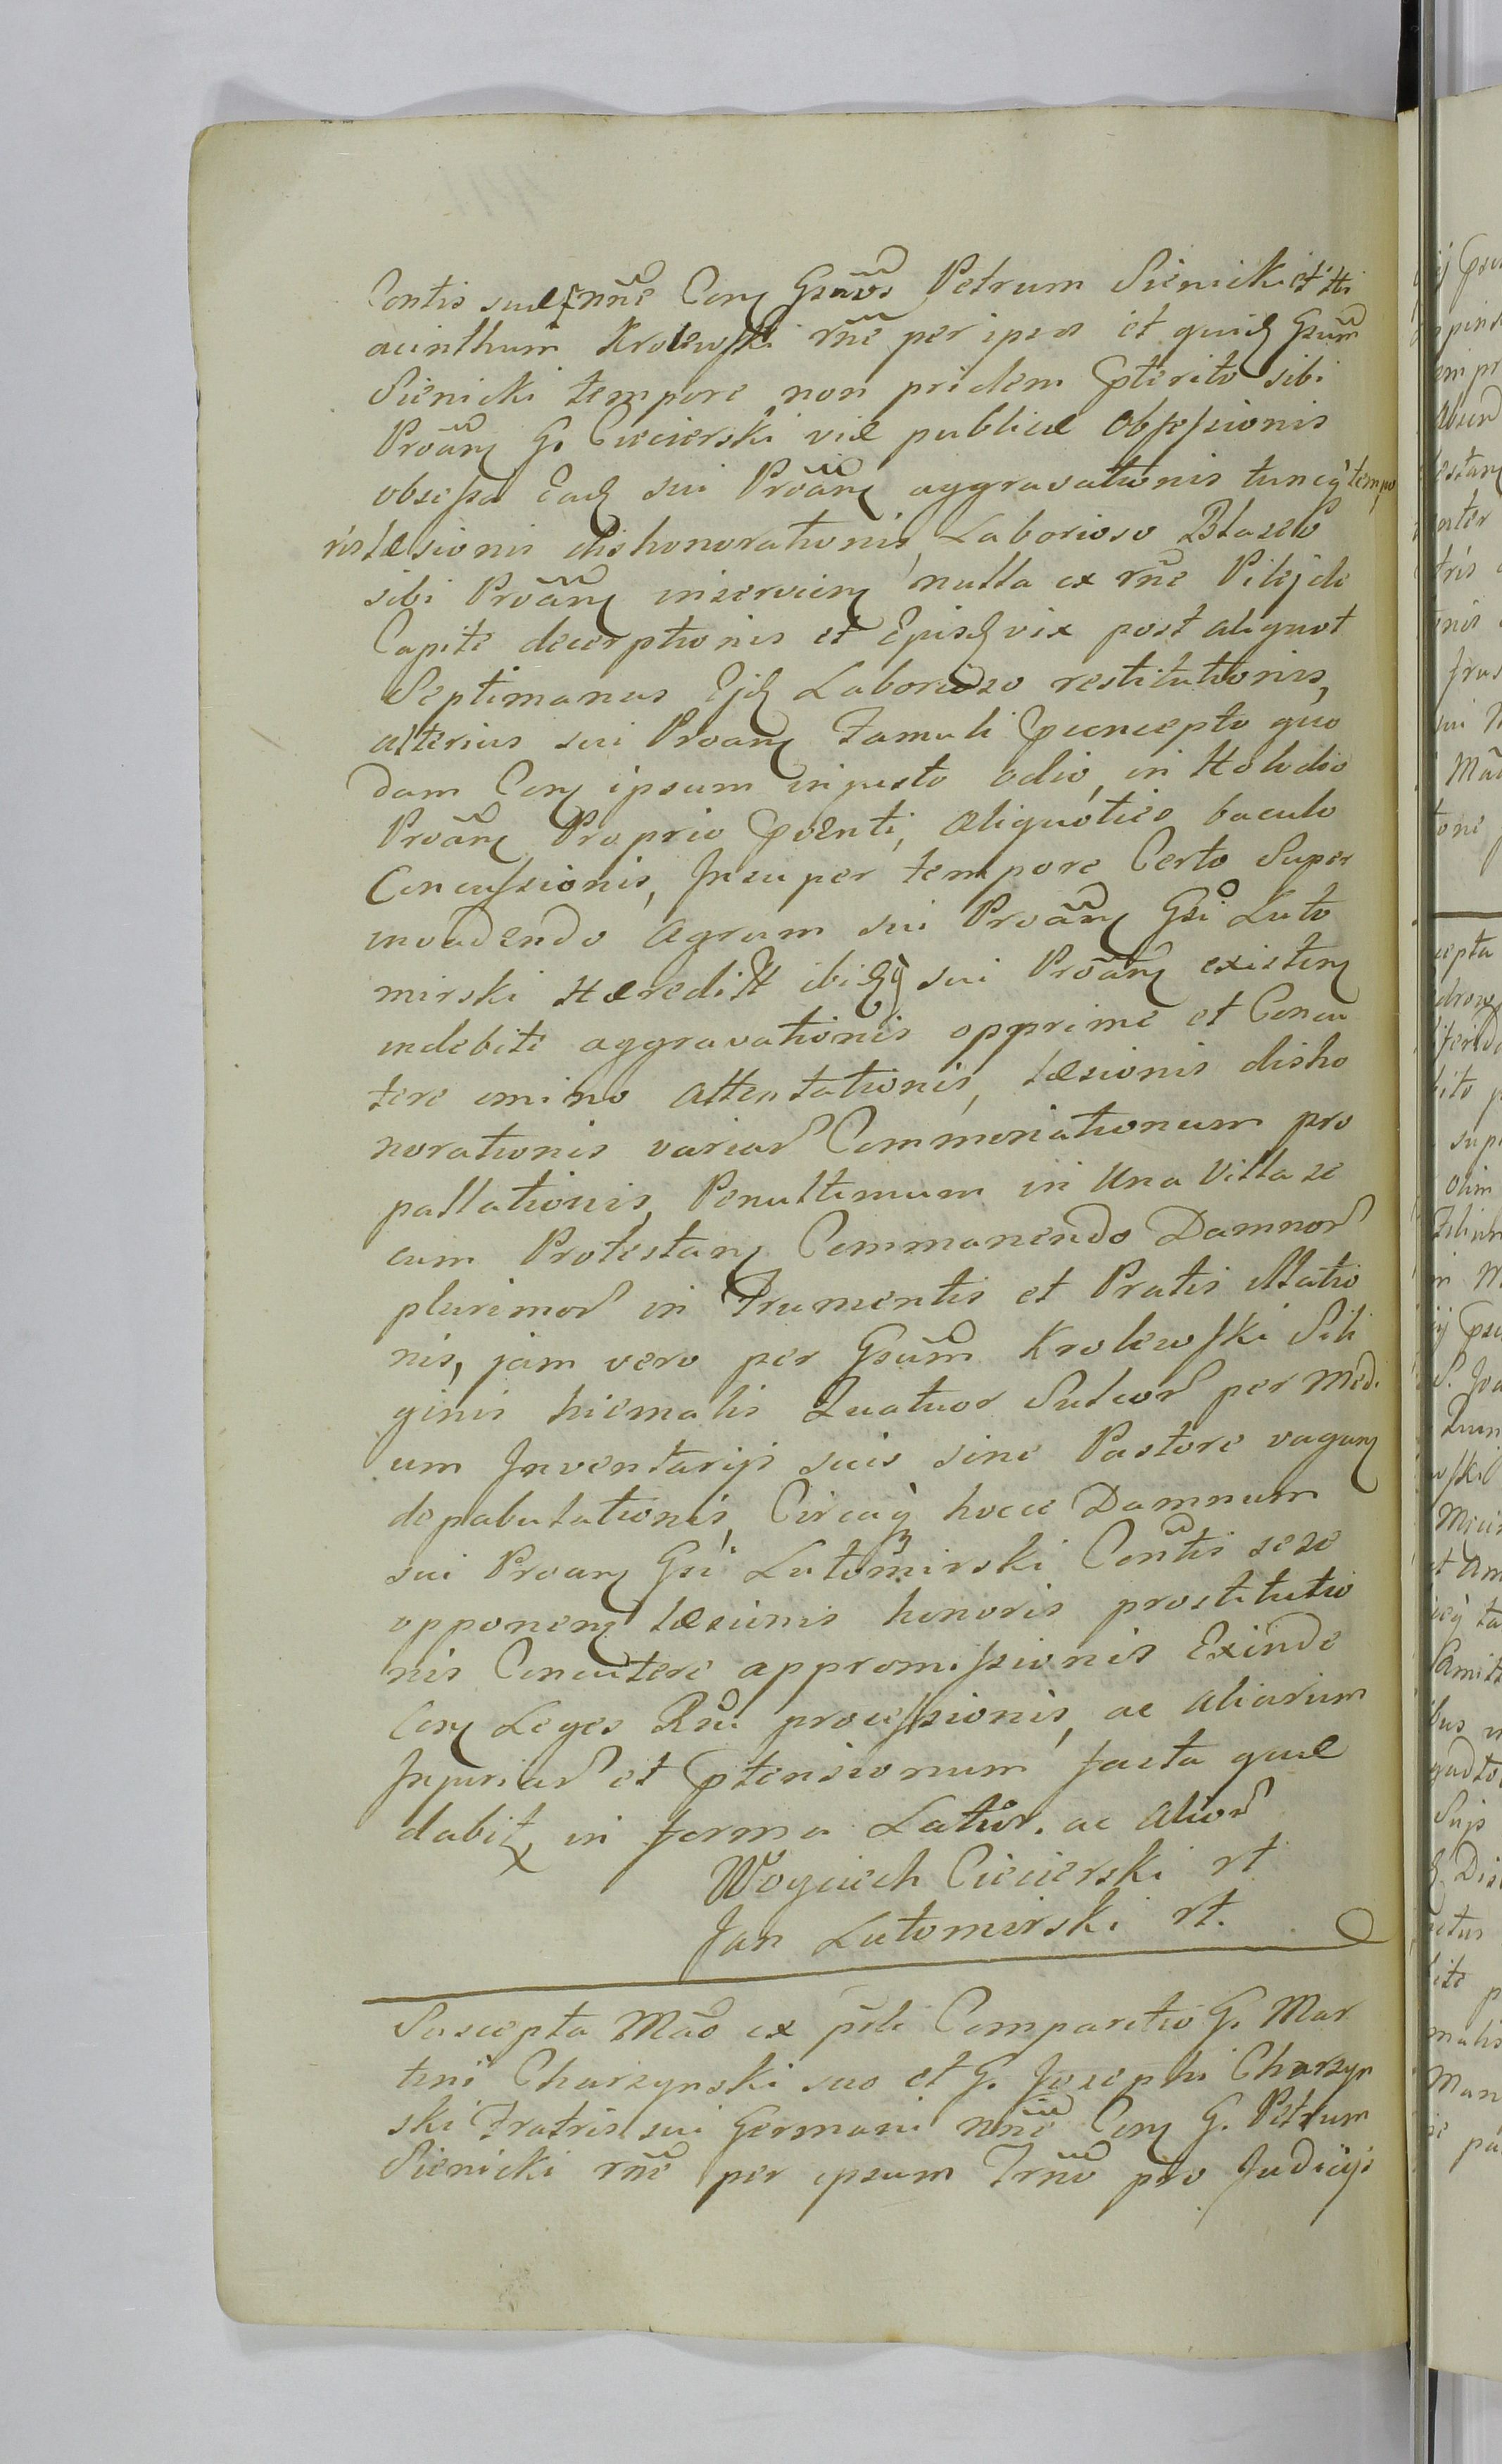 Contis suae nne Con Gsuos Petrum Sienicki et Hi
acinthum Krolewski rne per ipsos et quid Gsum
Sienicki tempore non pridem Pterito sibi
Proan G. Ciecierski viae publicae Obsessionis
obsessa Ead sui Proan aggravationis tuncq tempo
ris laesionis dishonorationis, Laborioso Blazeo
sibi Proan inservien nulla ex rne Pilej de
Capite decerptionis et Episd vix post aliquot
Septimanas Ejd Laborioso restitutionis,
alterius sui Proan Famuli Pconcepto quo
dam Con ipsum injusto odio, in Holodio
Proan Proprio Psenti, aliquoties baculo
Concussionis, Insuper tempore Certo Super
invadendo Agrum sui Proan Gsi Luto
mirski Haeredit ibidq sui Proan existen
indebite aggravationis opprime et Concu
tere imino attentationis, laesionis disho
norationis variar Comminationum pro
pallationis, Penultimum in Una Villa se
cum Protestan Commanendo Damnor
plurimor in Frumentis et Pratis illatio
nis, jam vero per Gsum Krolewski Sili
ginis hiemalis Quatuor Sulcor per Medi
um Inventarijs suis sine Pastore vagan
depabulationis, Circaq hocce Damnum
sui Proan Gsi Lutomirski Contis sese
opponen laesionis honoris prostitutio
nis Concutere appromissionis Exinde
Con Leges Rni processionis, ac aliarum
Injuriar et Ptensionum facta quae
dabit in forma Latior. ac alior
Woyciech Ciecierski rt
Jan Lutomirski rt.
Suscepta Mao ex psli Comparitio G. Mar
tini Charzynski suo et G. Josephi Charzyn
ski Fratris sui Germani nne Con G. Petrum
Sienicki rne per ipsum Trno pro Judicijs